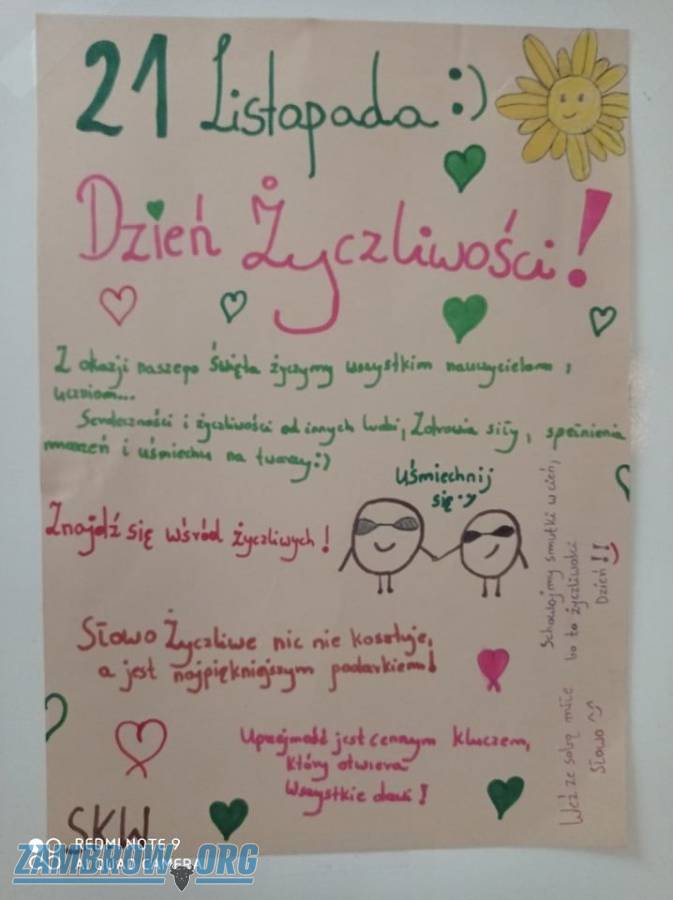 21 Listopada :)
Dzień Życzliwości!
Z okazji naszego Święta życzymy wszystkim nauczycielom i
uczniom...
Serdeczności i życzliwości od innych ludzi, Zdrowia siły, spełnienia
marzeń i uśmiechu na twarzy:)
Uśmiechnij
się :)
Znajdź się wśród życzliwych!
Schowajmy smutki w cień,
bo to życzliwości
Dzień!!
Słowo Życzliwe nic nie kosztuje,
a jest najpiękniejszym podarkiem!
Uprzejmość jest cennym kluczem,
który otwiera
Wszystkie drzwi!
Weź ze sobą miłe
Słowo
SKW
REDMI NOTE 9
AI QUAD CAMERA
ZAMBROW.ORG